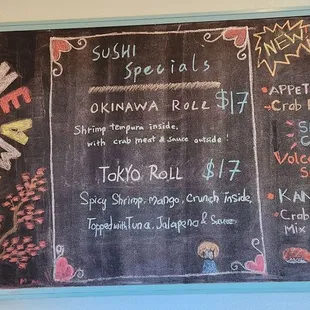 NEW
SUSHI
Specials
OKINAWA ROLL $17
Shrimp tempura inside,
with crab meat & sauce outside!
TOKYO ROLL $17
Spicy Shrimp, mango, Crunch inside,
Topped with Tuna, Jalapeno & Sauce
NEW
APPET
Crab
Volca
KAN
Crab
Mix